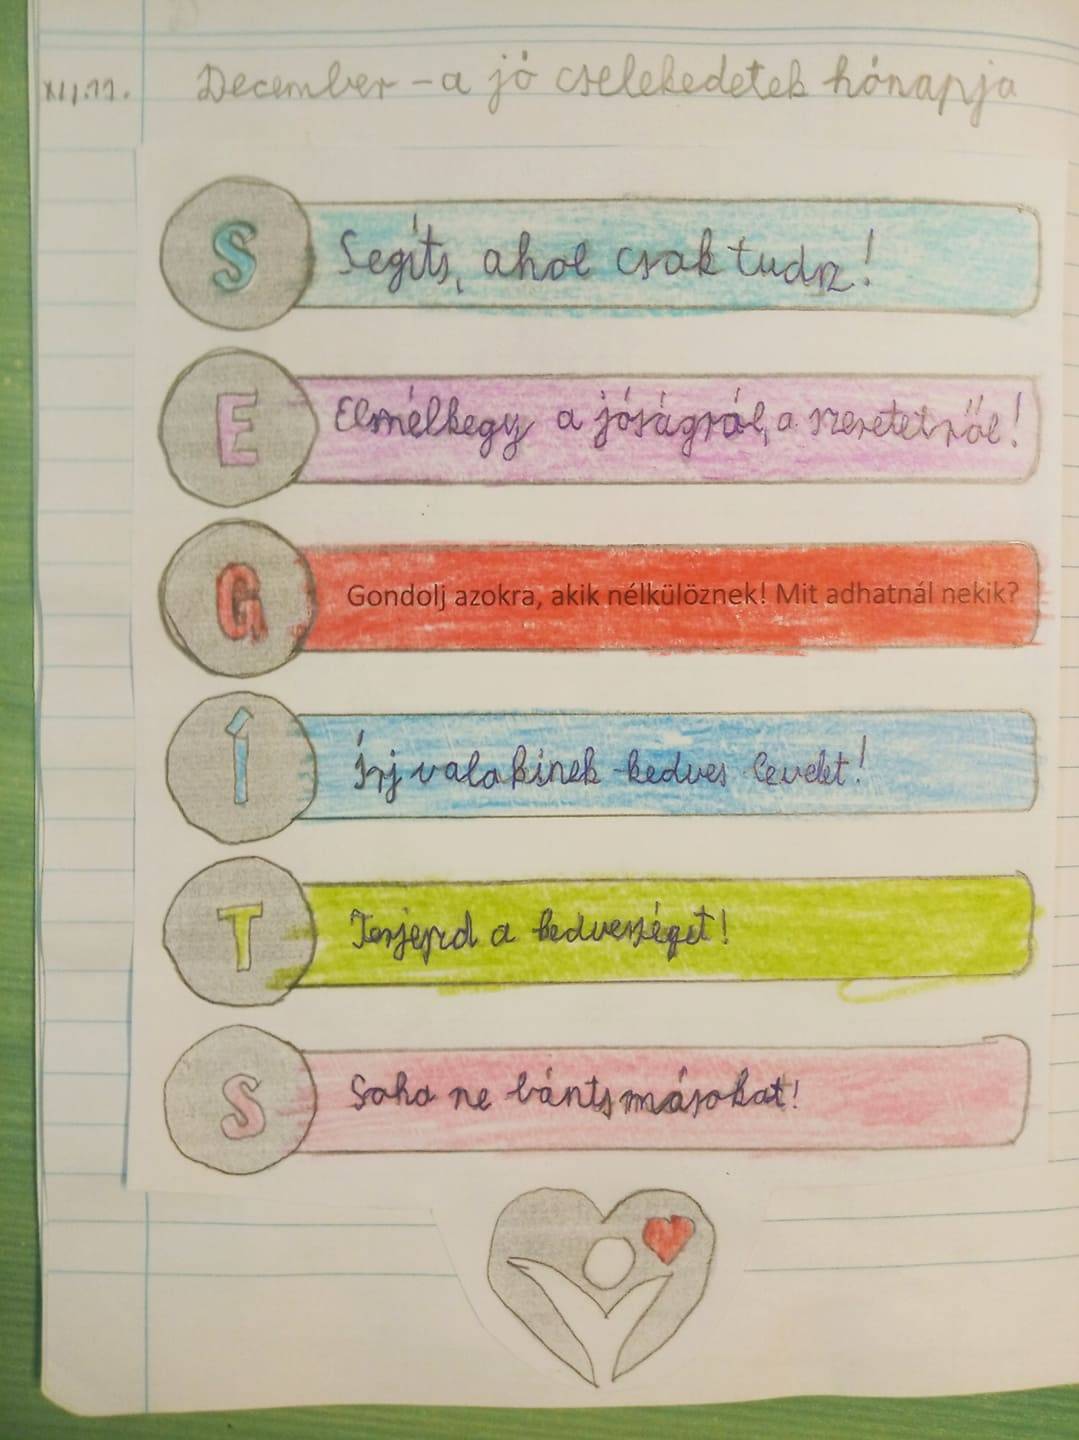 XII.11. December - a jó cselekedetek hónapja
S Segíts, ahol csak tudsz!
E Elmélkegy a jóságról, a szeretetről!
G Gondolj azokra, akik nélkülöznek! Mit adhatnál nekik?
Í Írj valakinek kedves levelet!
T Terjeszd a kedvességet!
S Soha ne bánts másokat!